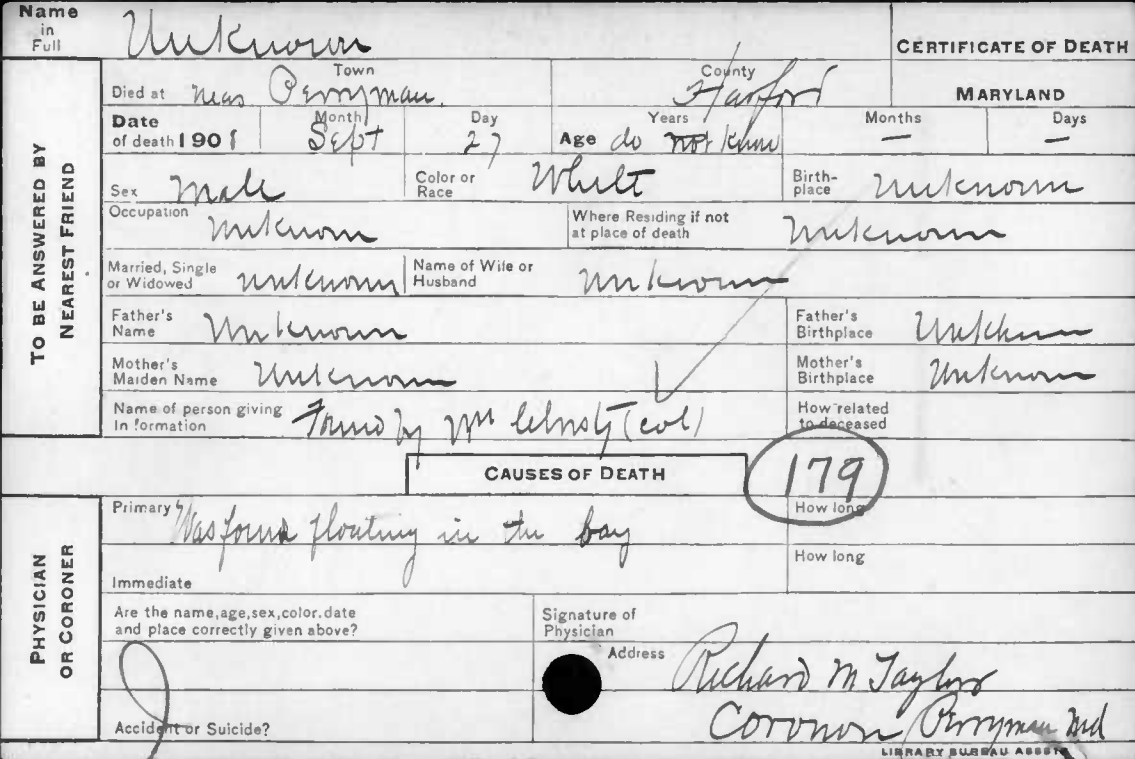 Name in Full Unknown
CERTIFICATE OF DEATH
TO BE ANSWERED BY NEAREST FRIEND
Died at near Perryman. Town Harford County MARYLAND
Date of death 1901 Month Sept Day 27 Age Years do not know Months — Days —
Sex Male Color or Race White Birthplace Unknown
Occupation Unknown Where Residing if not at place of death Unknown
Married, Single or Widowed Unknown Name of Wife or Husband Unknown
Father's Name Unknown Father's Birthplace Unknown
Mother's Maiden Name Unknown Mother's Birthplace Unknown
Name of person giving Information Found by Wm (col) How related to deceased
CAUSES OF DEATH 179
PHYSICIAN OR CORONER
Primary Was found floating in the bay How long
Immediate How long
Are the name,age,sex,color,date and place correctly given above? Signature of Physician
Address Richard M Taylor
Accident or Suicide? Coronor Perryman Md
LIBRARY BUREAU